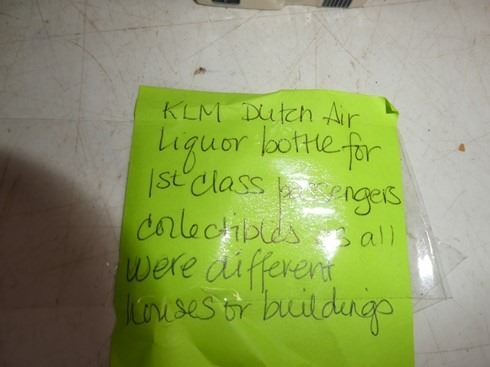 KLM Dutch Air
Liquor bottle for
1st Class passengers
collectibles as all
were different
houses or buildings